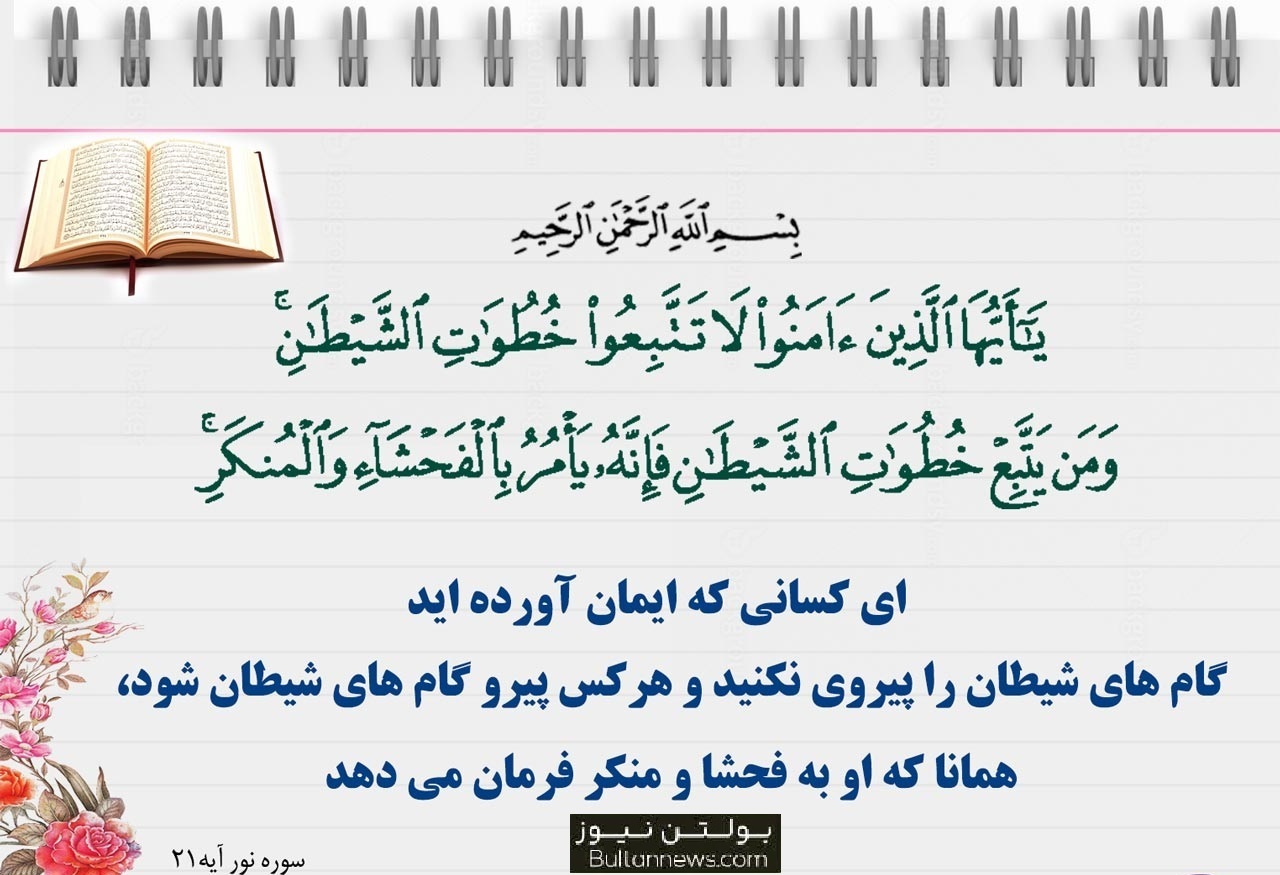 بِسْمِ ٱللَّهِ ٱلرَّحْمَٰنِ ٱلرَّحِيمِ
يَـٰٓأَيُّهَا ٱلَّذِينَ ءَامَنُوا۟ لَا تَتَّبِعُوا۟ خُطُوَٰتِ ٱلشَّيْطَـٰنِ ۚ
وَمَن يَتَّبِعْ خُطُوَٰتِ ٱلشَّيْطَـٰنِ فَإِنَّهُۥ يَأْمُرُ بِٱلْفَحْشَآءِ وَٱلْمُنكَرِ ۚ
ای کسانی که ایمان آورده اید
گام های شیطان را پیروی نکنید و هرکس پیرو گام های شیطان شود،
همانا که او به فحشا و منکر فرمان می دهد
سوره نور آیه۲۱
بولتن نیوز
Bultannews.com